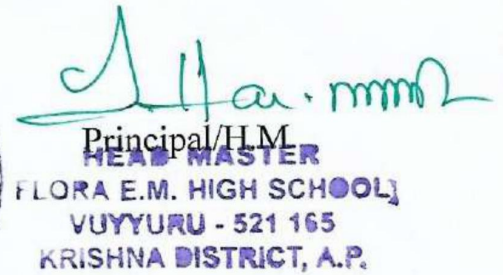 Principal/H.M.
HEAD MASTER
FLORA E.M. HIGH SCHOOL]
VUYYURU - 521 165
KRISHNA DISTRICT, A.P.